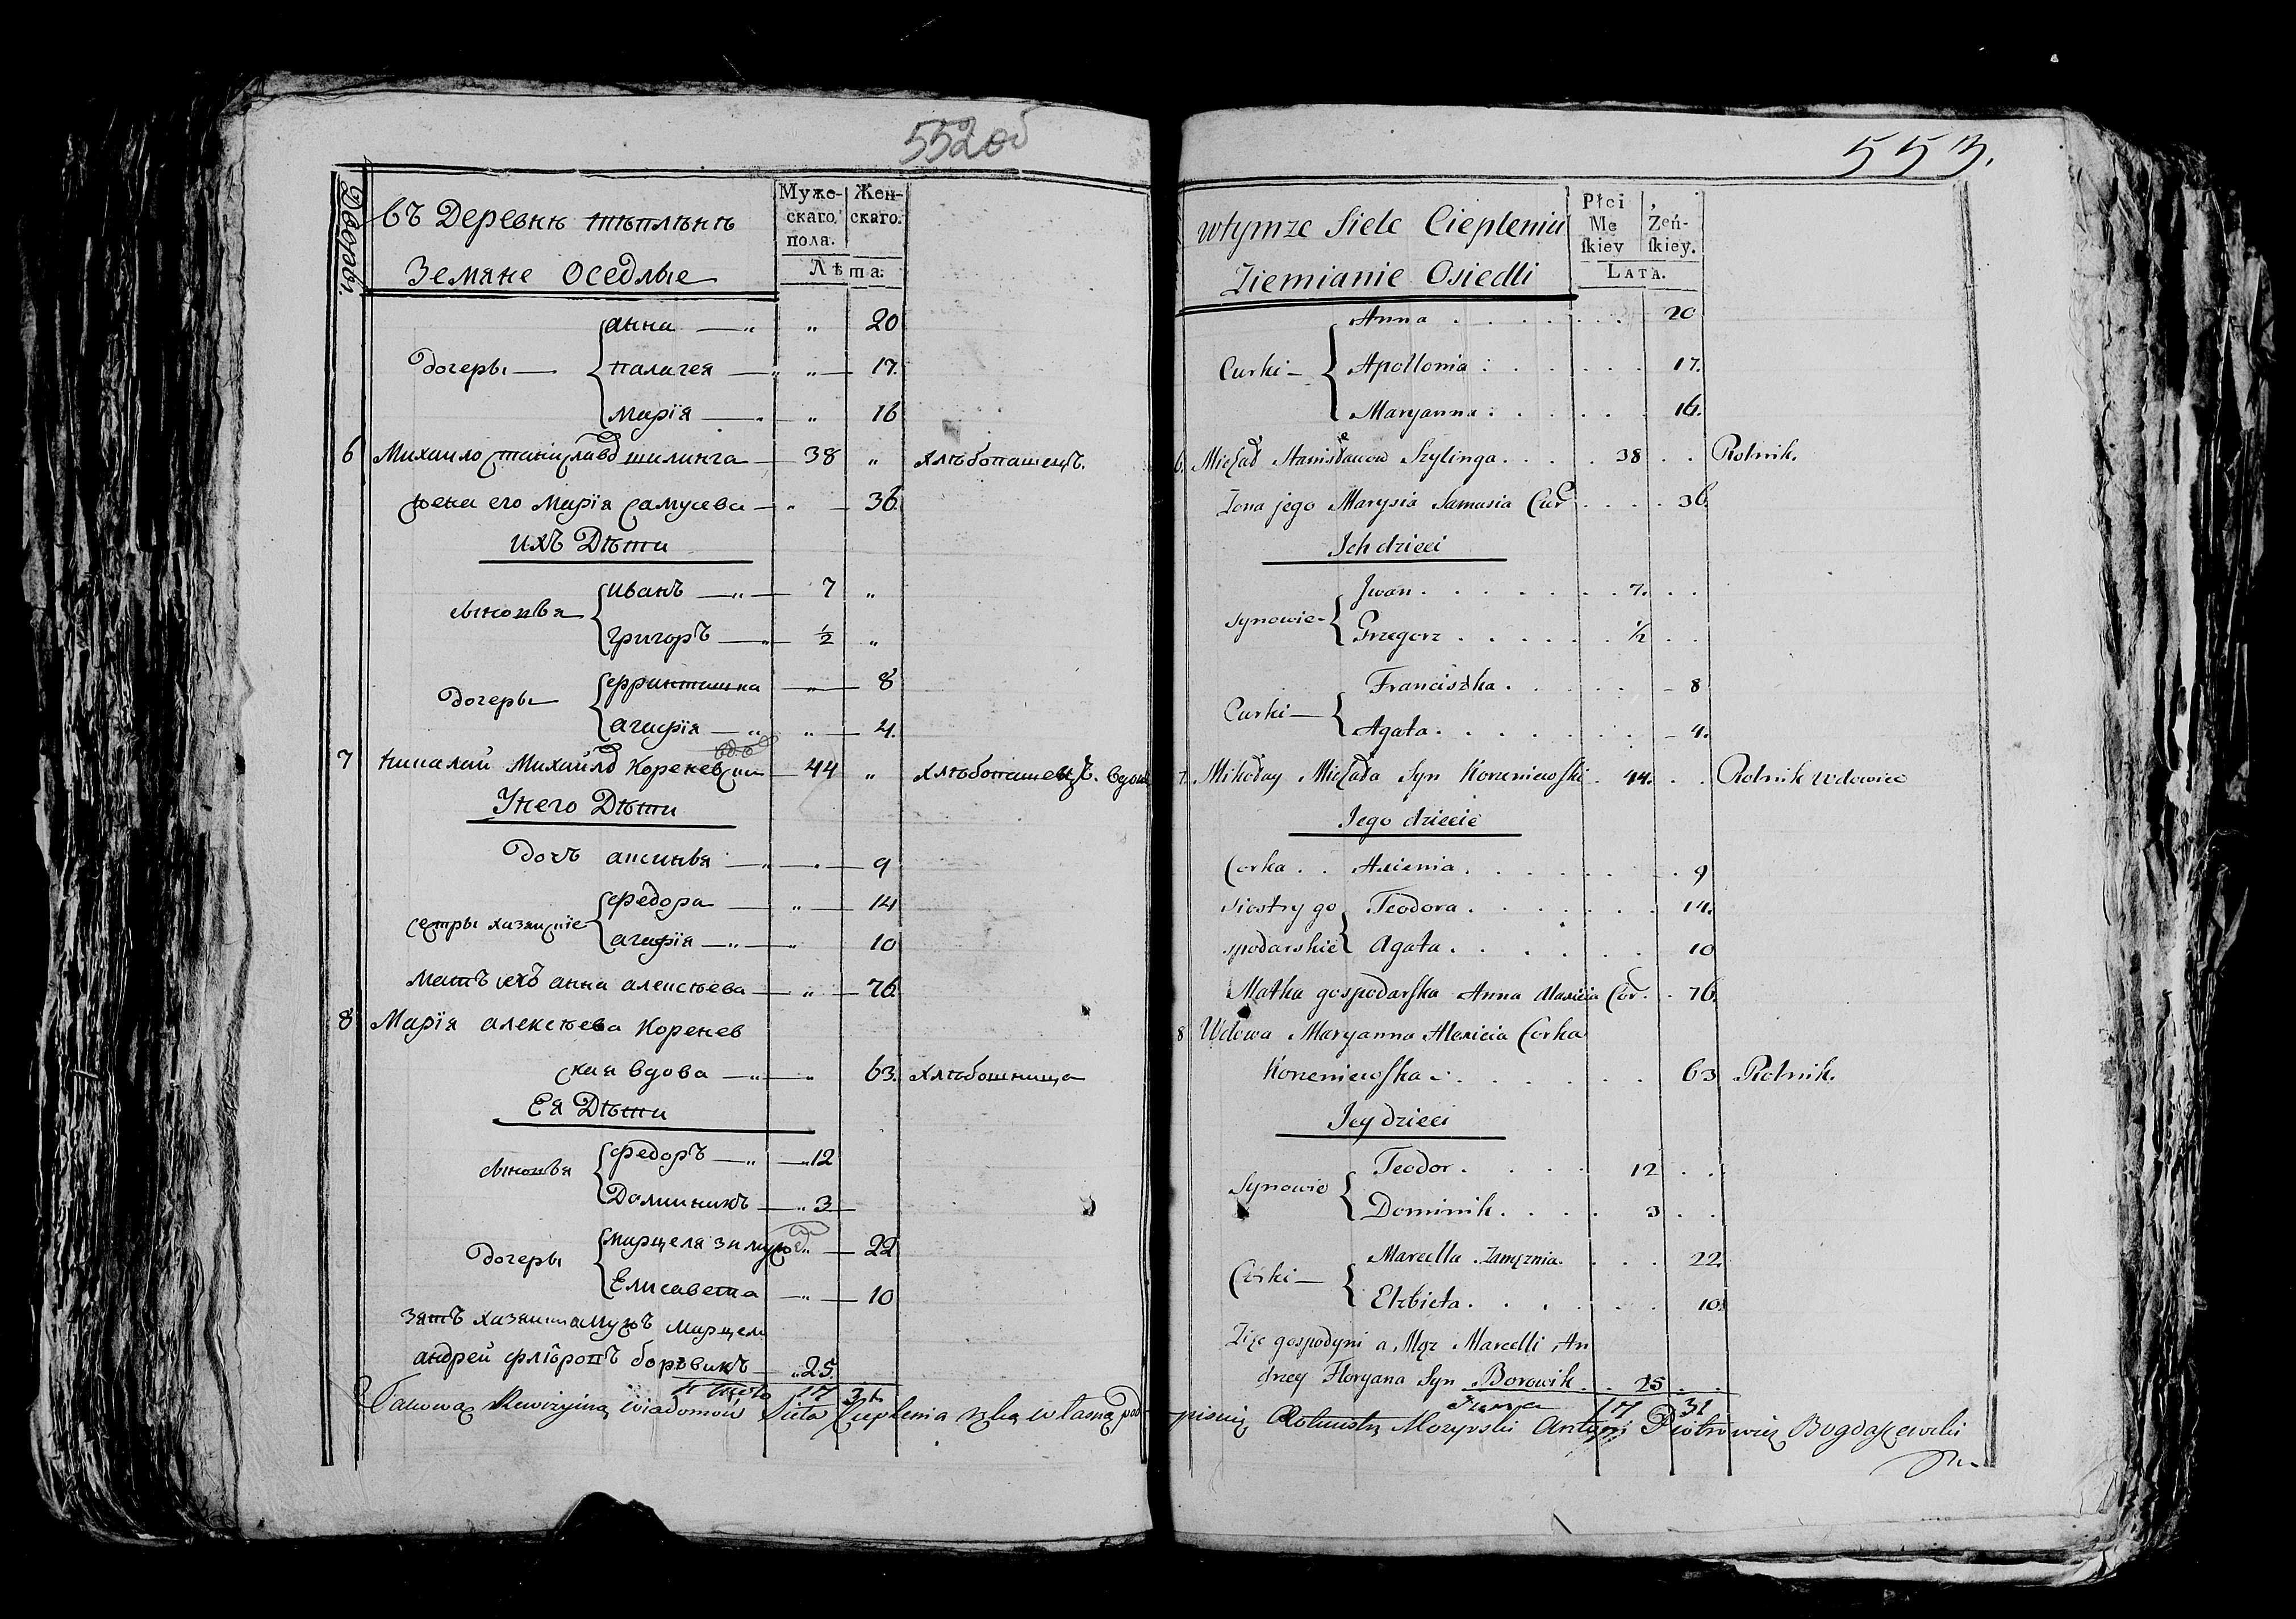 552 об
Дворы.
въ Деревнѣ тѣплѣнѣ
Земяне Оседлые
Муже-
скаго
пола.
Жен-
скаго.
Лѣта:
анна — „ „ 20
Дочеры — палагея — „ „ — 17.
Марїя — „ „ 16
6 Михаило Станиславо шилинга — 38 „ хлѣбопашецъ.
жена его Марїя Самусева — „ — 36.
ихъ Дѣти
Сыновья иванъ — „ — 7 „
григоръ — „ ½ „
Дочеры ффантишка — „ — 8
агафїя — „ „ — 4.
7 Николай Михайло Кореневски — 44 „ хлѣбопашецъ. вдов
Унего Дѣти
Дочъ аксинья — „ — 9
Сестры хазяискїе ффедора — „ — 14
агафїя — „ — „ 10
Матъ ихъ анна алексѣева — „ — 76.
8 Марїя алексѣева Коренев
ская вдова — „ — „ 63.
Ея Дѣти
Сыновья Федоръ — „ — „ 12
Доминикъ — „ 3 —
Дочеры Марцеля замужо „ — 22
Елисавета — „ — 10
зятъ мужъ Марцели
андрей боровикъ — „ 25.
Итого 17 31.
553.
wtymze Siele Ciepleniu
Ziemianie Osiedli
Płci
Mę
ſkiey
Żeń-
ſkiey.
Lata.
Anna . . . . . . . 20
Curki — Apollonia : . . . . . 17.
Maryanna : . . . . . 16.
6. Michał Stanisławow Szylinga . . . . 38 . . Rolnik.
Zona jego Marysia Samusia Cur . . . . 36.
Ich dzieci
Synowie - Jwan . . . . . . . 7. . .
Grzegorz . . . . . . ½ . .
Curki — Franciszka . . . . . - 8
Agata . . . . . . . - 4.
7. Mikołay Michała Syn Korzeniewſki . 44. . . Rolnik Wdowiec
Jego dziecie
Corka . . Axienia . . . . . . . 9
Siostry go Teodora . . . . . . . 14.
spodarskie Agata . . . . . . 10
Matka gospodarſka Anna Alexieia Cor . . 76.
8 Wdowa Maryanna Alexieia Corka
Korzeniewſka . . . . . . . 63 Rolnik.
Jey dzieci
Synowie Teodor . . . . . 12 . .
Dominik . . . . 3 . .
Córki — Marcella . Zamęznia . . . . 22.
Elzbieta . . . . . . . 10.
Zięc gospodyni a Mąz Marcelli , An
drzey Floryana Syn Borowik . . 25 . .
Summa 17 31
Takowąz Rewizyiną wiadomość Sieła Cieplenia ręką własną pod-
pisuię Rotmistrz Mozyrski Antoni Piotrowicz